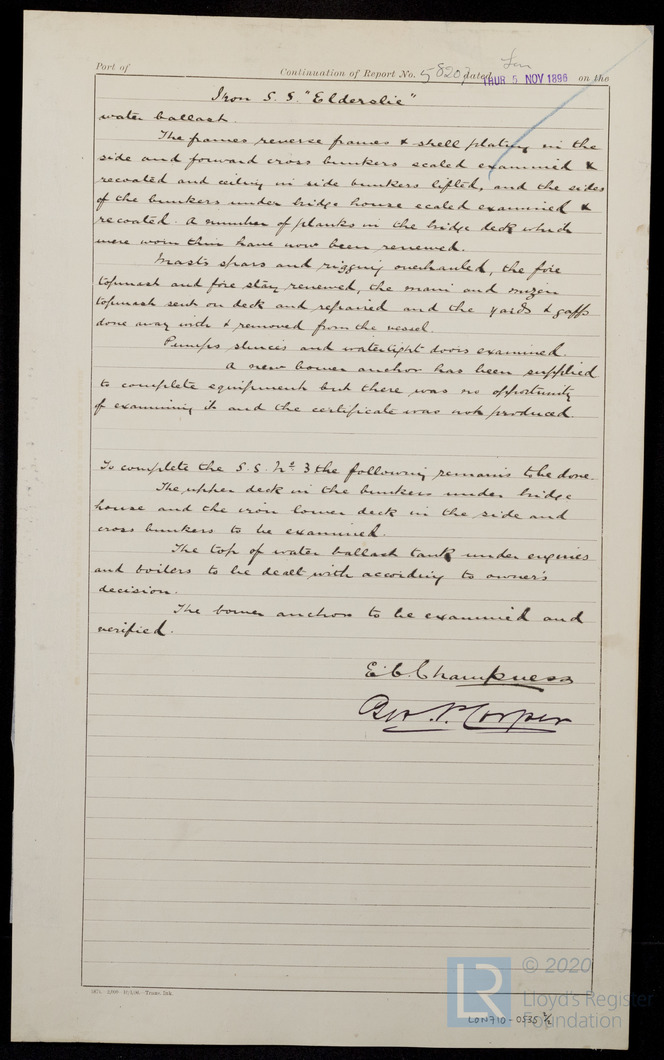 Lon
Port of Continuation of Report No. 58207 dated THUR 5 NOV 1896 on the
Iron S.S. "Elderslie"
water ballast.
The frames reverse frames & shell plating in the
side and forward cross bunkers scaled examined &
recoated and ceiling in side bunkers lifted, and the sides
of the bunkers under bridge house scaled examined &
recoated. A number of planks in the bridge deck which
were worn thin have now been renewed.
Masts spars and rigging overhauled, the fore
topmast and fore stay renewed, the main and mizen
topmast sent on deck and repaired and the yards & gaffs
done away with & removed from the vessel.
Pumps sluices and watertight doors examined.
A new bower anchor has been supplied
to complete equipment but there was no opportunity
of examining it and the certificate was not produced.
To complete the S.S. No. 3 the following remains to be done.
The upper deck in the bunkers under bridge
house and the iron lower deck in the side and
cross bunkers to be examined.
The top of water ballast tank under engines
and boilers to be dealt with according to owner's
decision.
The bower anchor to be examined and
verified.
E.C. Champness
Geo. P. Corper
© 2020
LR
Lloyd's Register
Foundation
LON710-0535 2/2